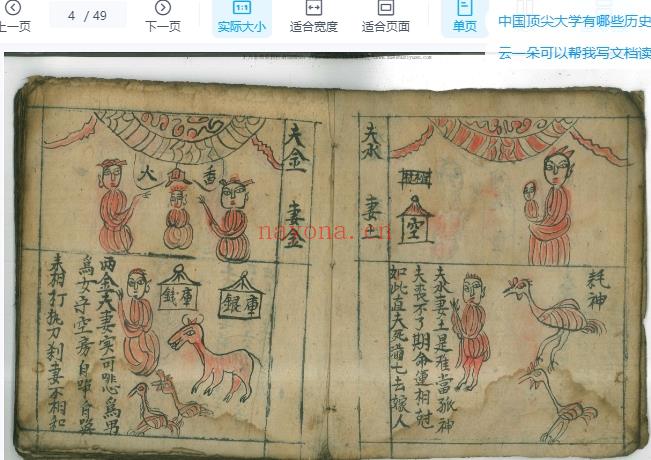 上一页
4 / 49
下一页
实际大小
适合宽度
适合页面
单页
中国顶尖大学有哪些历史
云一朵可以帮我写文档读
nayona.cn
夫水 妻土
空
耗神
夫水妻土是推當孤神
夫喪不了期命運相尅
如此直夫死猶七去嫁人
夫金 妻金
香
火
庫銀
庫錢
兩金夫妻实可悲
為男為女守空房自
夫相打执刀刹妻不相和